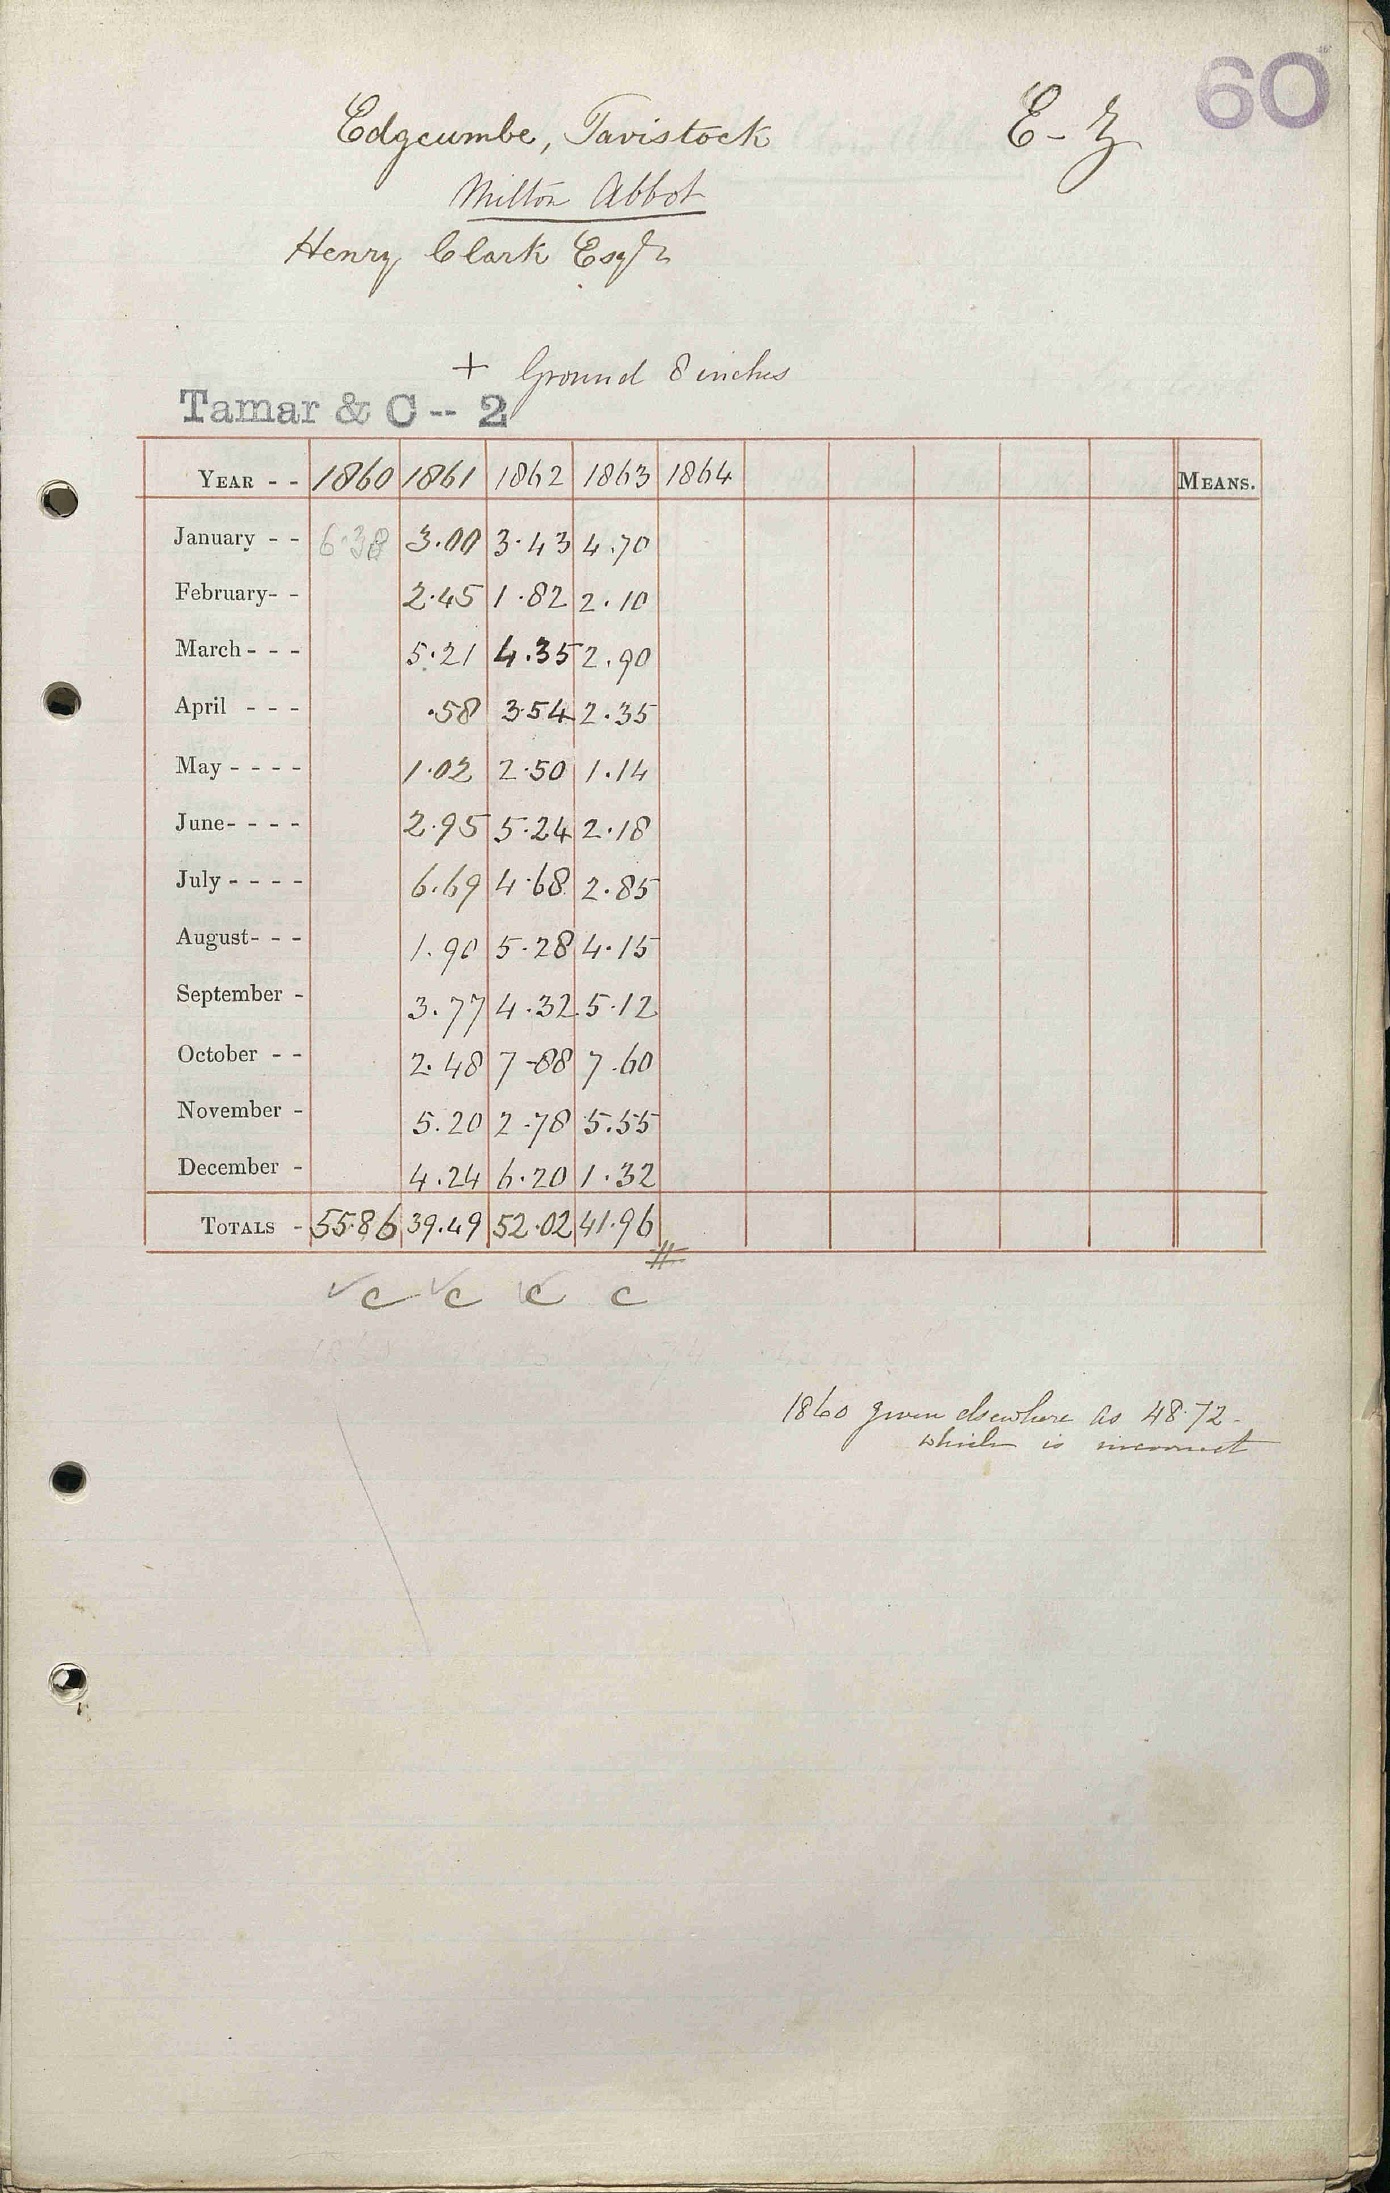 60
Edgcumbe, Tavistock E - Z
Milton Abbot
Henry Clark Esqr
+ Ground 8 inches
Tamar & C -- 2
YEAR - - 1860 1861 1862 1863 1864 MEANS.
January - - 6.38 3.00 3.43 4.70
February- - 2.45 1.82 2.10
March - - - 5.21 4.35 2.90
April - - - .58 3.54 2.35
May - - - - 1.02 2.50 1.14
June- - - - 2.95 5.24 2.18
July - - - - 6.69 4.68 2.85
August- - - 1.90 5.28 4.15
September - 3.77 4.32 5.12
October - - 2.48 7.88 7.60
November - 5.20 2.78 5.55
December - 4.24 6.20 1.32
TOTALS - 55.86 39.49 52.02 41.96
#
✓c ✓c ✓c c
1860 given elsewhere as 48.72 -
which is incorrect